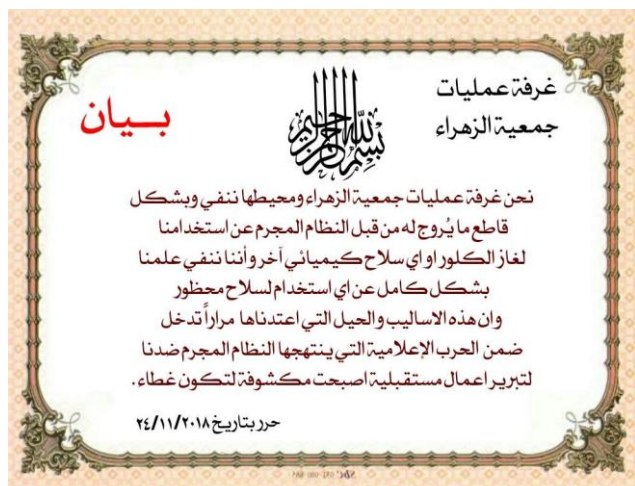 غرفة عمليات
جمعية الزهراء
بسم الله الرحمن الرحيم
بيان
نحن غرفة عمليات جمعية الزهراء ومحيطها ننفي وبشكل
قاطع ما يُروج له من قبل النظام المجرم عن استخدامنا
لغاز الكلور او اي سلاح كيميائي آخر وأننا ننفي علمنا
بشكل كامل عن اي استخدام لسلاح محظور
وان هذه الاساليب والحيل التي اعتدناها مراراً تدخل
ضمن الحرب الإعلامية التي ينتهجها النظام المجرم ضدنا
لتبرير اعمال مستقبلية اصبحت مكشوفة لتكون غطاء.
حرر بتاريخ ٢٤/١١/٢٠١٨